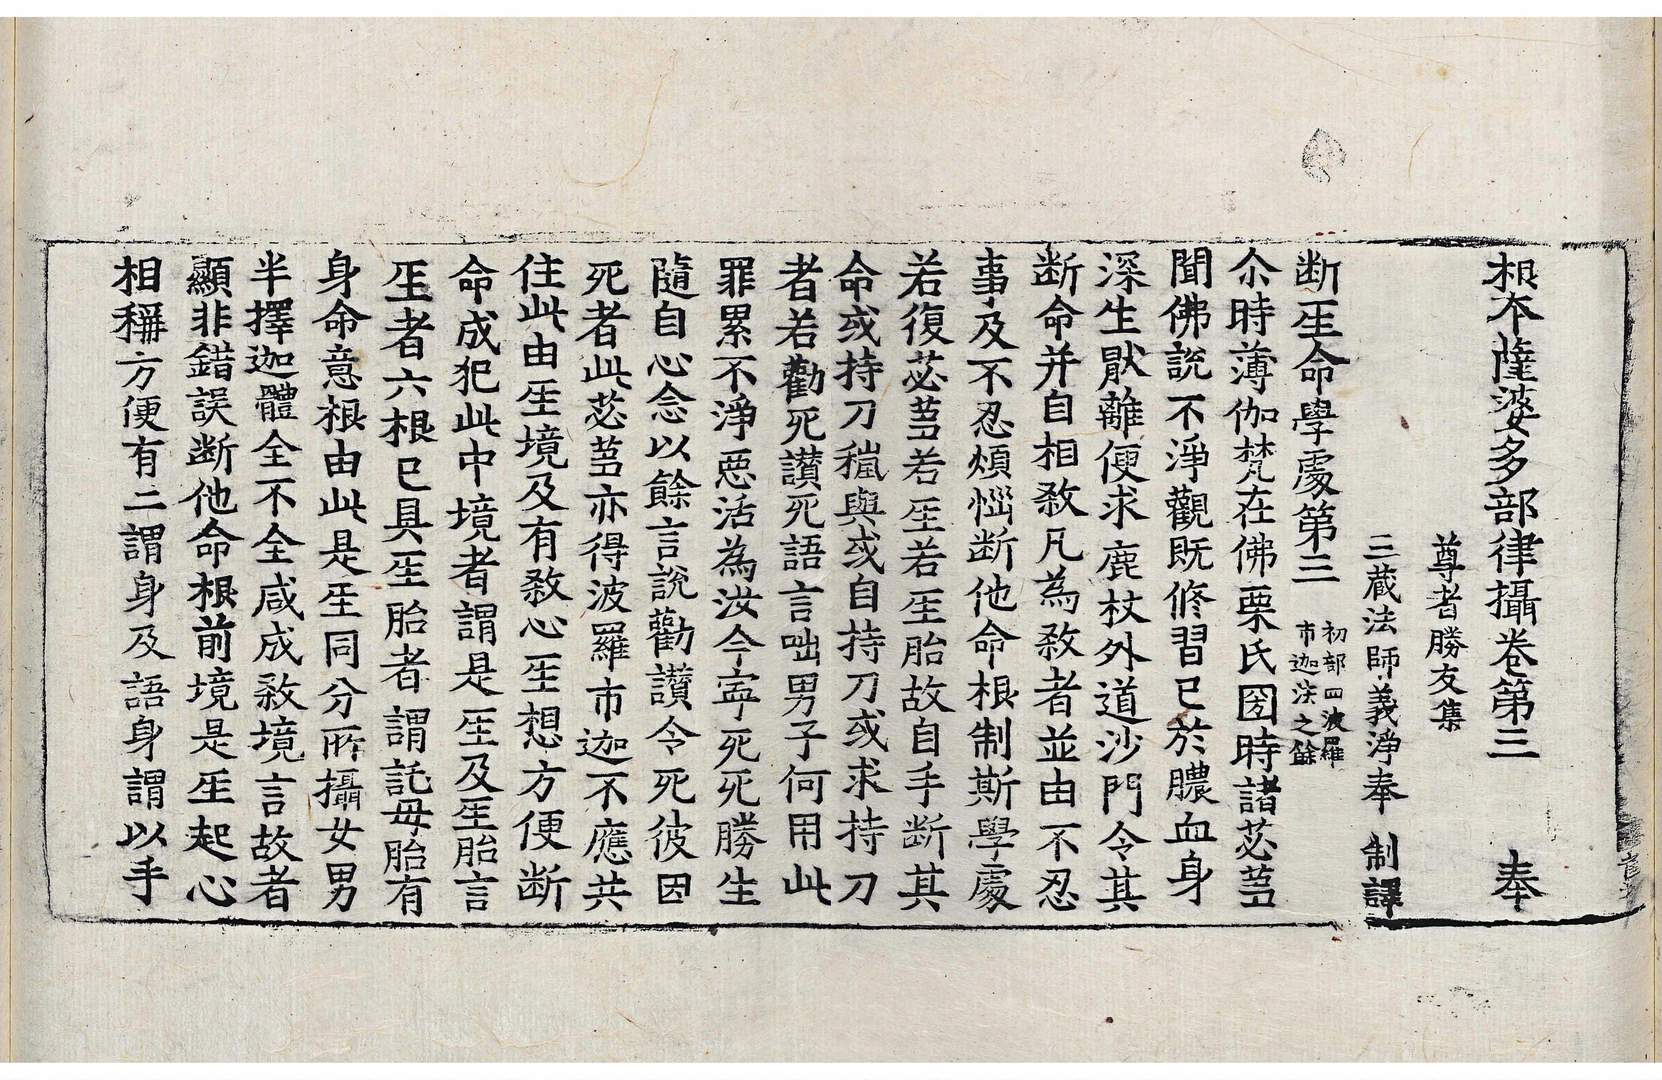 根本薩婆多部律攝卷第三 奉
尊者勝友集
三蔵法師義淨奉 制譯
断𤯔命學處第三 初部四波羅市迦法之餘
尒時薄伽梵在佛栗氏國時諸苾芻
聞佛說不淨觀既修習已於膿血身
深生猒離便求鹿杖外道沙門令其
断命并自相煞凡為煞者並由不忍
事及不忍煩惱断他命根制斯學處
若復苾芻若𤯔若𤯔胎故自手断其
命或持刀𥡳與或自持刀或求持刀
者若勸死讃死語言咄男子何用此
罪累不淨惡活為汝今寧死死勝生
隨自心念以餘言說勸讃令死彼因
死者此苾芻亦得波羅市迦不應共
住此由𤯔境及有煞心𤯔想方便断
命成犯此中境者謂是𤯔及𤯔胎言
𤯔者六根已具𤯔胎者謂託母胎有
身命意根由此是𤯔同分所攝女男
半擇迦體全不全咸成煞境言故者
顯非錯誤断他命根前境是𤯔起心
相稱方便有二謂身及語身謂以手